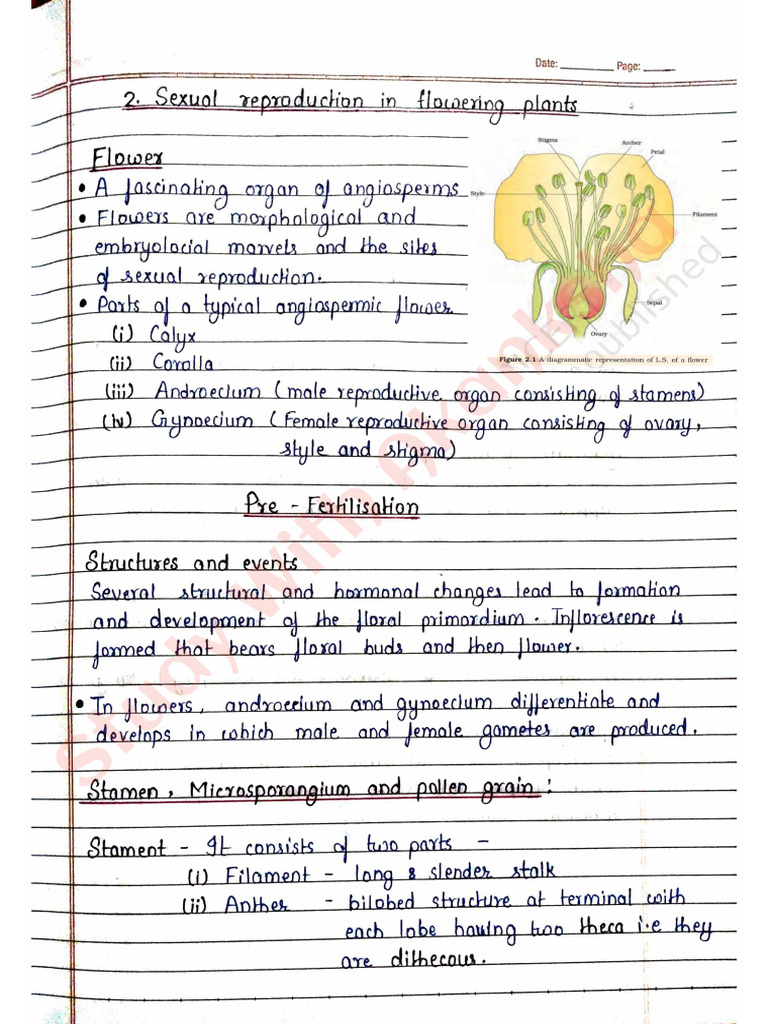 Date: ________ Page: _____
2. Sexual reproduction in flowering plants
Flower
• A fascinating organ of angiosperms
• Flowers are morphological and
embryolocial marvels and the sites
of sexual reproduction.
• Parts of a typical angiospermic flower
(i) Calyx
(ii) Corolla
(iii) Androecium (male reproductive organ consisting of stamens)
(iv) Gynoecium (Female reproductive organ consisting of ovary,
style and stigma)
Stigma
Anther
Petal
Style
Filament
Sepal
Ovary
Figure 2.1 A diagrammatic representation of L.S. of a flower
Pre - Fertilisation
Structures and events
Several structural and hormonal changes lead to formation
and development of the floral primordium. Inflorescence is
formed that bears floral buds and then flower.
• In flowers, androecium and gynoecium differentiate and
develops in which male and female gametes are produced.
Stamen, Microsporangium and pollen grain :
Stament - It consists of two parts -
(i) Filament - long & slender stalk
(ii) Anther - bilobed structure at terminal with
each lobe having two theca i.e they
are dithecous.
Study With Akanksha
published